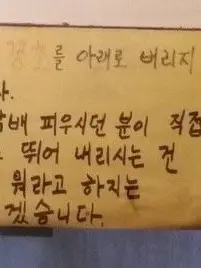 꽁초를 아래로 버리지
다.
담배 피우시던 분이 직접
뛰어 내리시는 건
뭐라고 하지는
겠습니다.